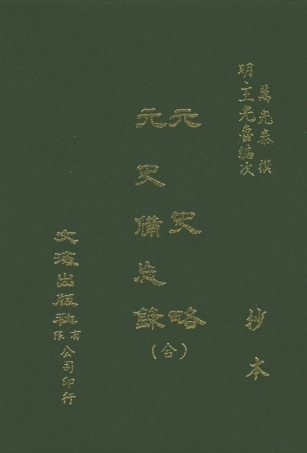 萬光泰撰
明·王光魯編次
抄本
元史略
元史備忘錄
(合)
文海出版社有限公司印行